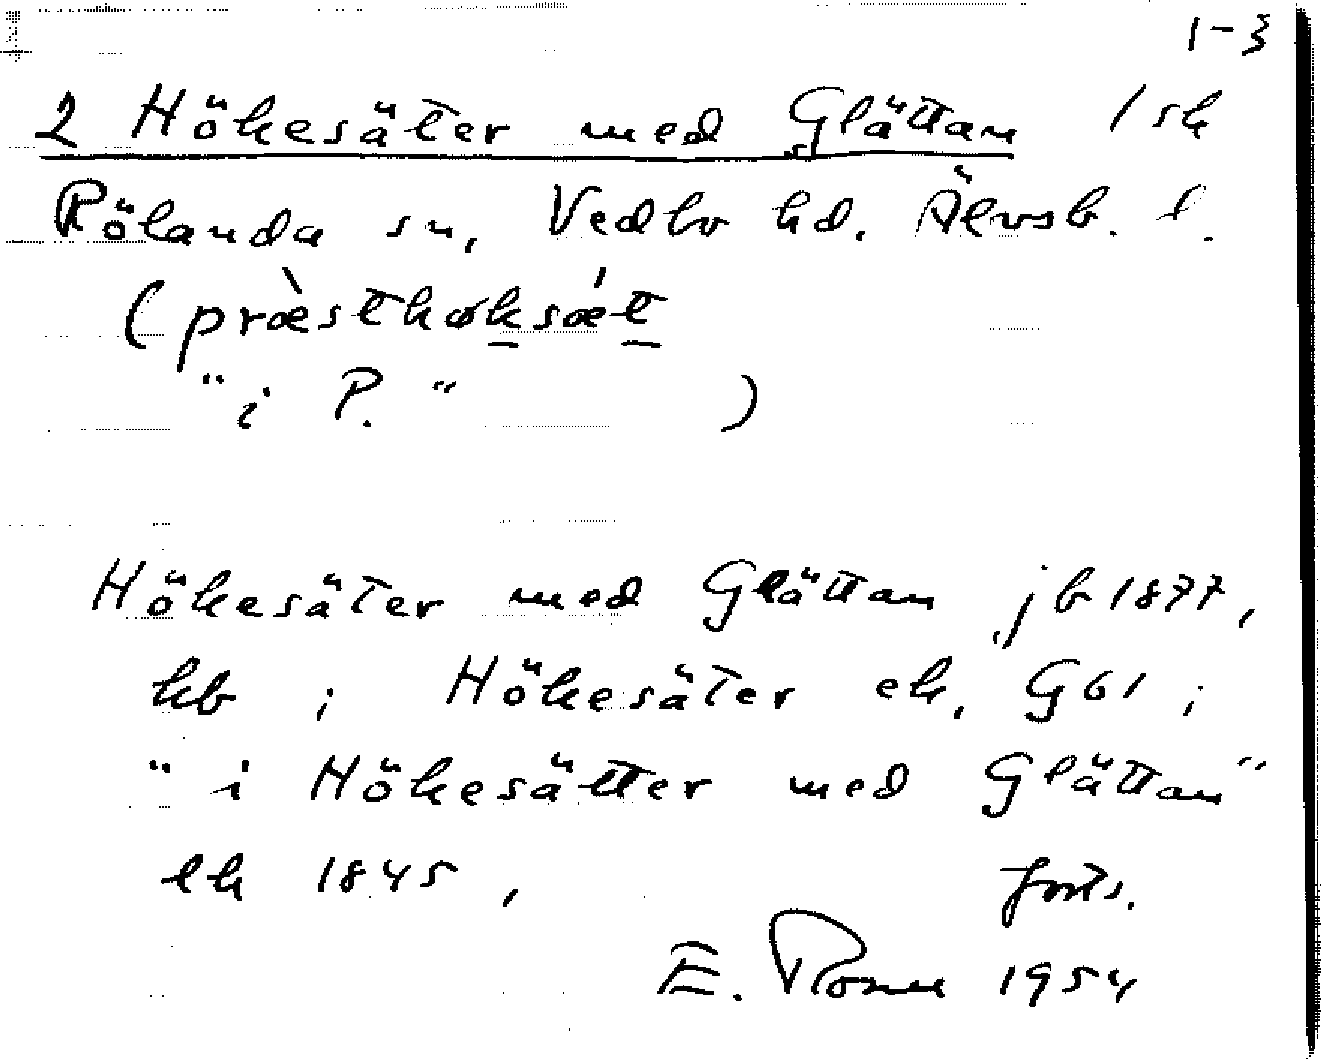 1-3
2 Hökesäter med Glättan / sk
Rölanda sn, Vedbo hd. Älvsb. l.
(præ̀sthøksǽt
" i P. " )
Hökesäter med Glättan jb 1877,
hb ; Hökesäter ek, G61 ;
" i Hökesätter med Glättan "
ek 1845, forts.
E. 1954